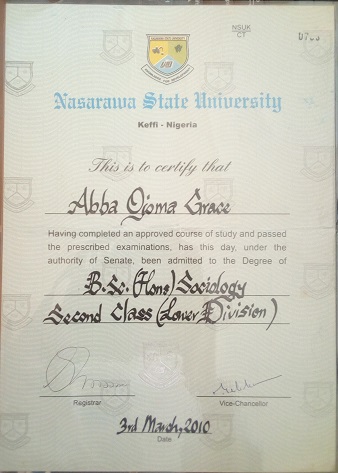 NSUK
CT
Nasarawa State University
Keffi - Nigeria
This is to certify that
Abba Ojoma Grace
Having completed an approved course of study and passed
the prescribed examinations, has this day, under the
authority of Senate, been admitted to the Degree of
B.Sc. (Hons) Sociology
Second Class (Lower Division)
Registrar
Vice-Chancellor
3rd March, 2010
Date